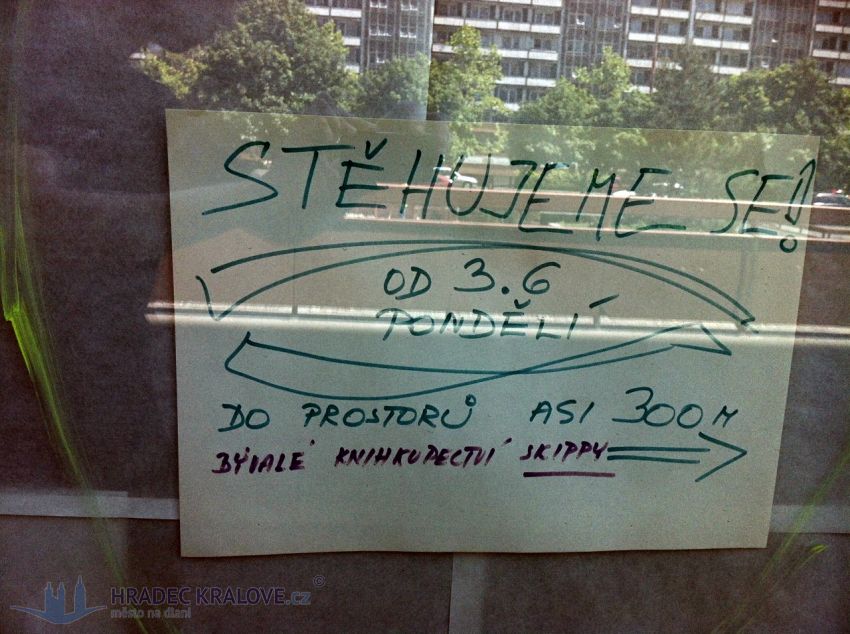 STĚHUJEME SE!
OD 3.6
PONDĚLÍ
DO PROSTORŮ ASI 300M
BÝVALÉ KNIHKUPECTVÍ SKIPPY
HRADEC KRALOVE.cz ©
město na dlani